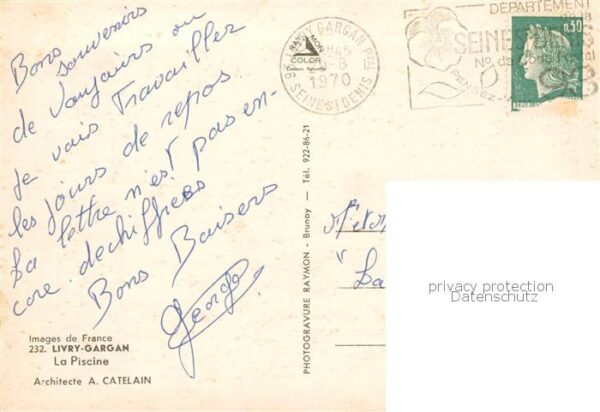 Bons souvenirs
de Vaujours ou
je vais Travailler
les jours de repos
La lettre n'est pas en-
core dechiffrées
Bons Baisers
George
Images de France
232. LIVRY-GARGAN
La Piscine
Architecte A. CATELAIN
PHOTOGRAVURE RAYMON - Brunoy — Tél. 922-86-21
RAY MON
COLOR
GARGAN PAL
1970
SEINE-ST-DENIS
DÉPARTEMENT
SEINE ST DENIS
N° de Code Postal
PENSEZ
0,30
"La
privacy protection
Datenschutz